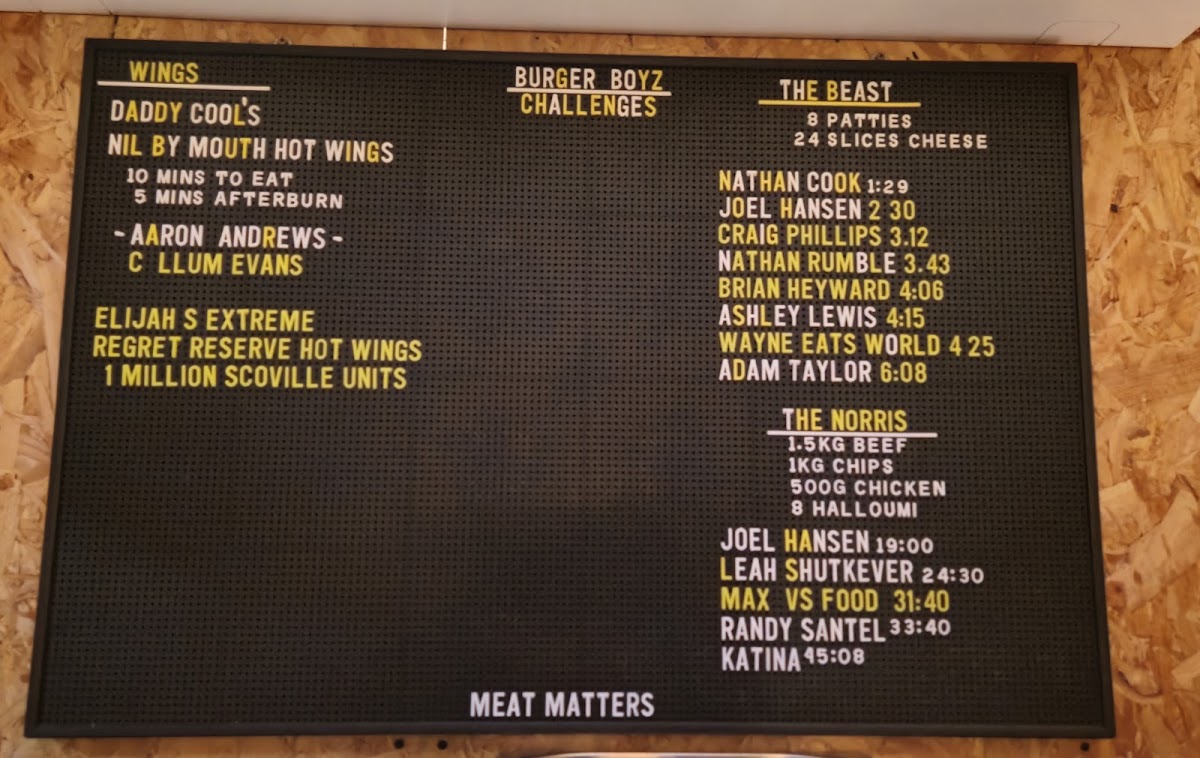 WINGS
DADDY COOL'S
NIL BY MOUTH HOT WINGS
10 MINS TO EAT
5 MINS AFTERBURN
-AARON ANDREWS-
C LLUM EVANS
ELIJAH S EXTREME
REGRET RESERVE HOT WINGS
1 MILLION SCOVILLE UNITS
BURGER BOYZ
CHALLENGES
THE BEAST
8 PATTIES
24 SLICES CHEESE
NATHAN COOK 1:29
JOEL HANSEN 2 30
CRAIG PHILLIPS 3.12
NATHAN RUMBLE 3.43
BRIAN HEYWARD 4:06
ASHLEY LEWIS 4:15
WAYNE EATS WORLD 4 25
ADAM TAYLOR 6:08
THE NORRIS
1.5KG BEEF
1KG CHIPS
500G CHICKEN
8 HALLOUMI
JOEL HANSEN 19:00
LEAH SHUTKEVER 24:30
MAX VS FOOD 31:40
RANDY SANTEL 33:40
KATINA 45:08
MEAT MATTERS